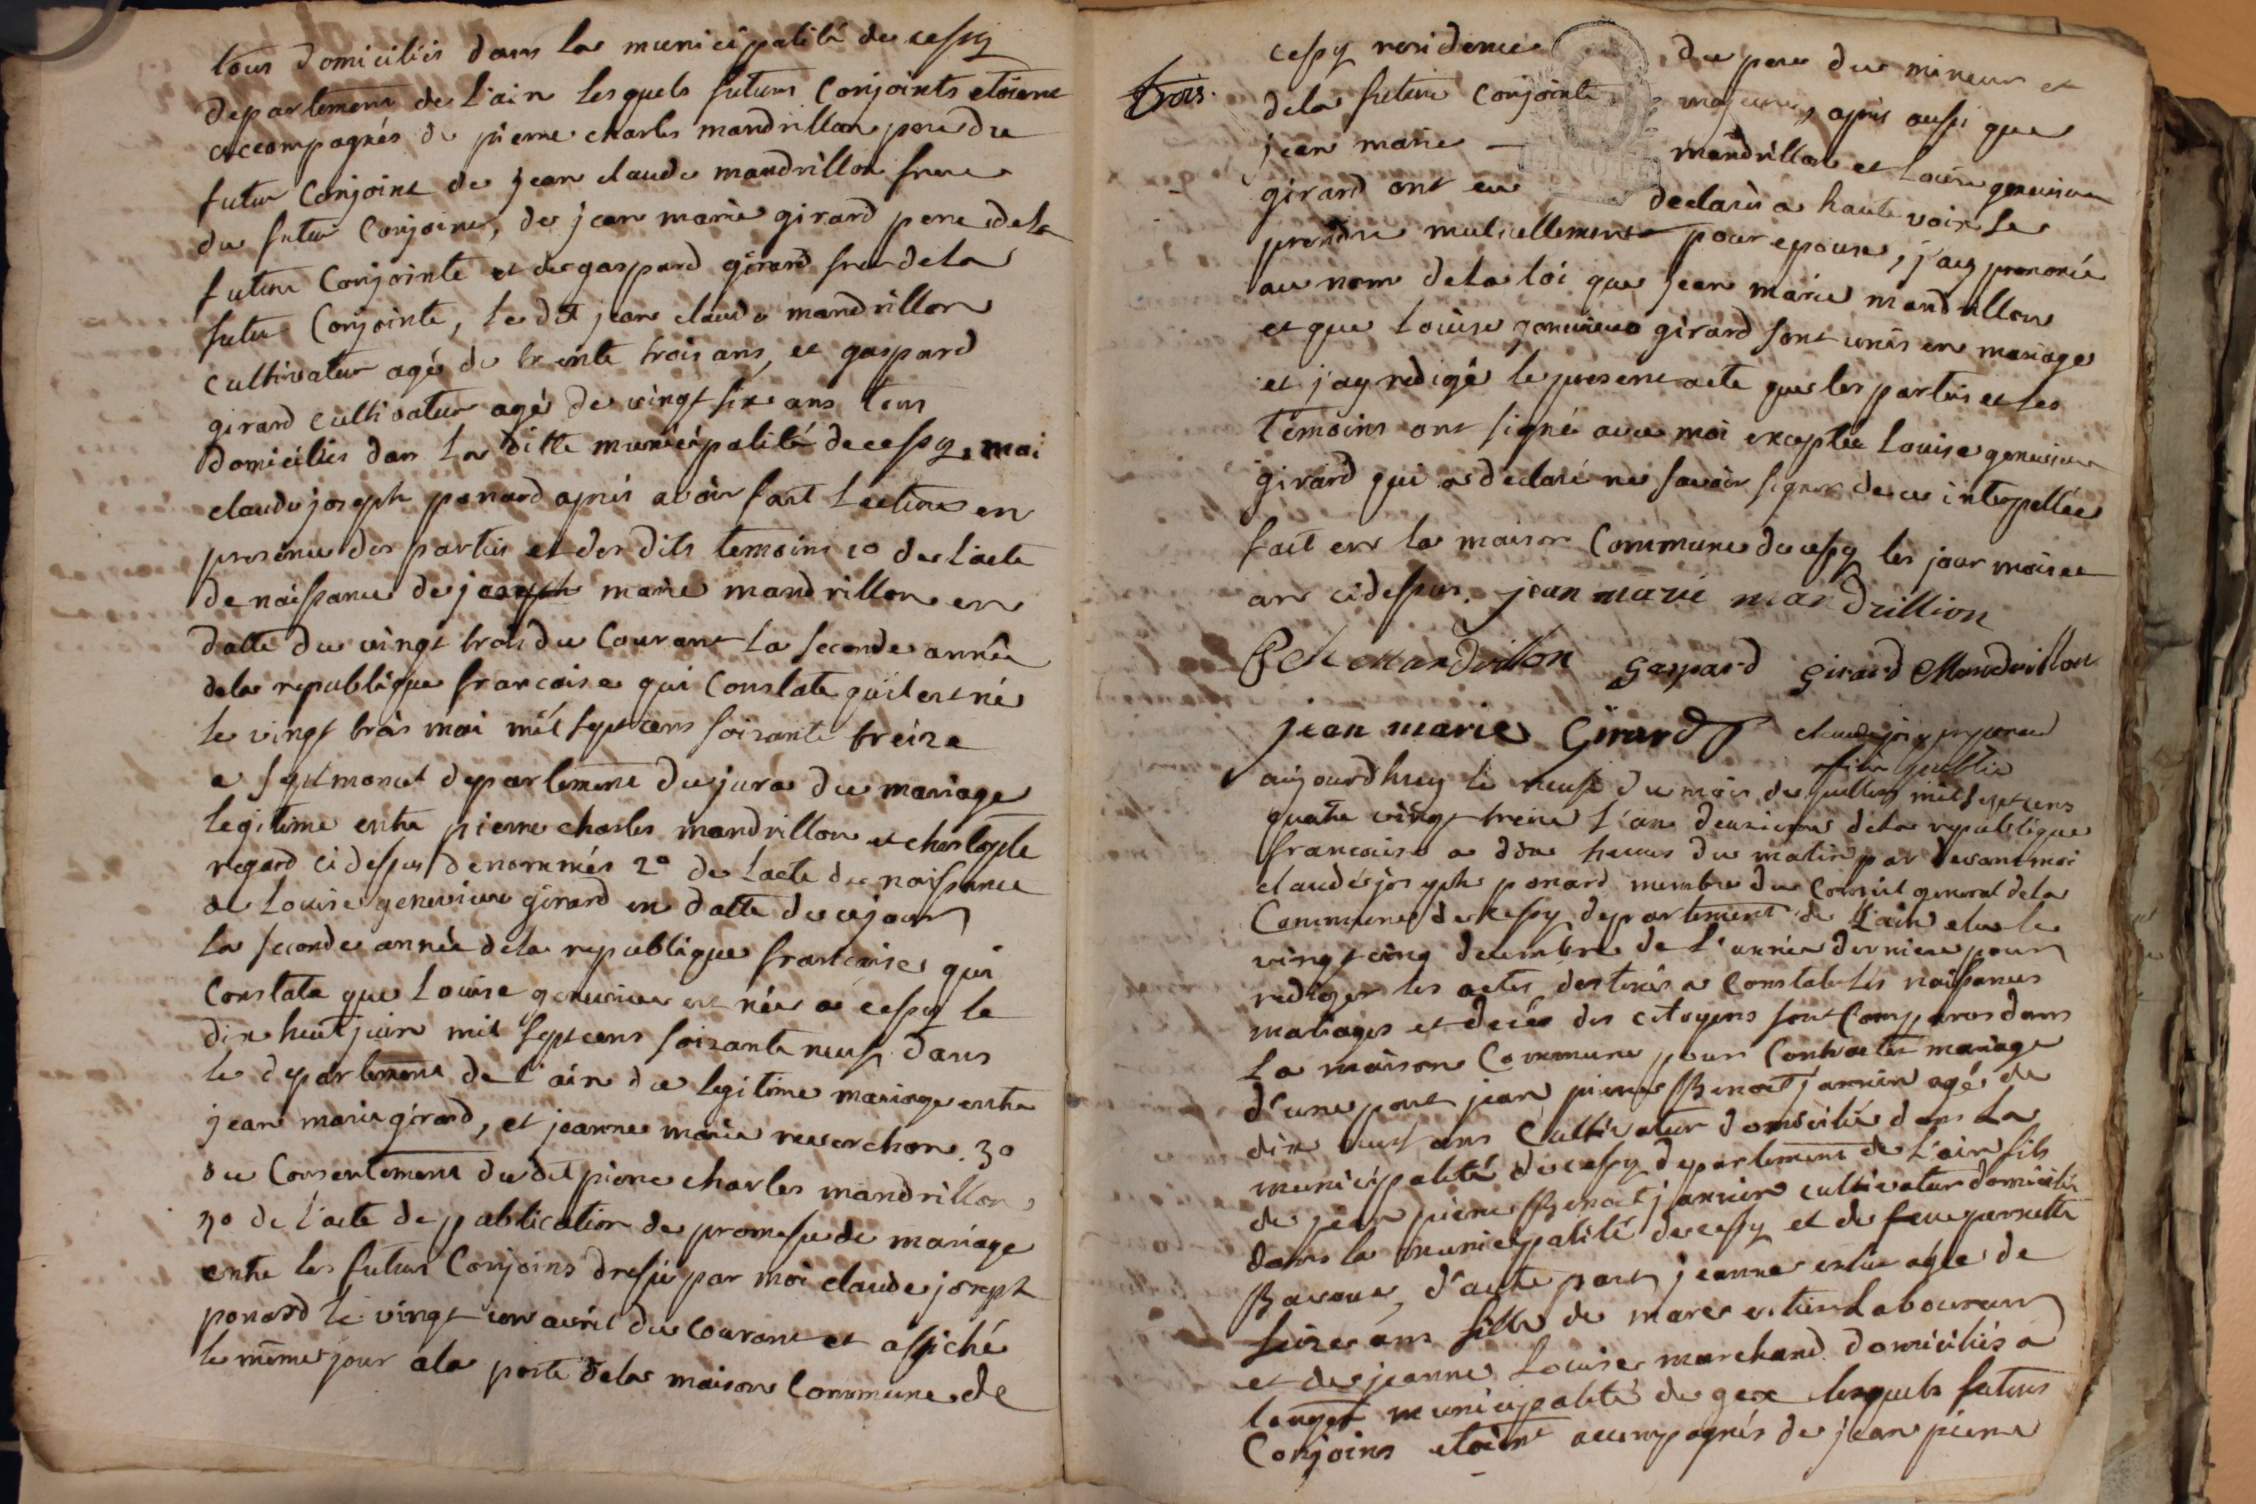 tous domiciliés dans la municipalité de cessy
departement de l'ain lesquels futurs conjoints etoient
accompagnés de pierre charles mandrillon pere du
futur conjoint de jean claude mandrillon frere
du futur conjoint, de jean marie girard pere de la
future conjointe et de gaspard girard frere de la
future conjointe, le dit jean claude mandrillon
cultivateur agé de trente trois ans, et gaspard
girard cultivateur agé de vingt six ans tous
domiciliés dans la ditte municipalité de cessy, moi
claude joseph ponard après avoir fait lecture en
presence des parties et des dits temoins 1o de l'acte
de naissance de joseph marie mandrillon en
datte du vingt trois du courant la seconde année
de la republique francoise qui constate qu'il est né
le vingt trois mai mil sept cens soixante treize
a septmoncel departement du jura du mariage
legitime entre pierre charles mandrillon et
regard ci dessus denommés 2o de l'acte de naissance
de Louise genevieve girard en datte de ce jour
la seconde année de la republique francoise qui
constate que Louise genevieve est née a cessy le
dix huit juin mil sept cens soixante neuf dans
le departement de l'ain du legitime mariage entre
jean marie girard, et jeanne marie reverchon 3o
du consentement du dit pierre charles mandrillon,
4o de l'acte de publication de promesse de mariage
entre les futurs conjoins dressé par moi claude joseph
ponard le vingt un avril du courant et affiché
le même jour a la porte de la maison commune de
trois.
cessy residence du pere du mineur et
de la future conjointe majeure, après aussi que
jean marie — mandrillon et Louise genevieve
girard ont eu declaré a haute voix se
prendre mutuellement pour epoux, j'ay prononcé
au nom de la loi que jean marie mandrillon
et que Louise genevieve girard sont unis en mariage
et j'ay redigé le present acte que les parties et les
temoins ont signé avec moi exceptée Louise genevieve
girard qui a declaré ne savoir signer de ce interpellée
fait en la maison commune de cessy les jour mois et
an ci dessus. jean marie mandrillion
P Ch Mandrillon gaspard girard Mandrillon
jean marie Girard claude joseph ponard
officier public
aujourdhuy le neuf du mois de juillet mil sept cens
quatre vingt treize l'an deuxieme de la republique
francoise a dix heures du matin par devant moi
claude joseph ponard membre du conseil general de la
Commune de cessy departement de l'ain elu le
vingt cinq decembre de l'année derniere pour
rediger les actes destinés a constater les naissances
mariages et decés des citoyens sont comparus dans
la maison commune pour contracter mariage
d'une part jean pierre Benoit janin agé de
dix neuf ans cultivateur domicilié dans la
municipalité de cessy departement de l'ain fils
de jean pierre Benoit janin cultivateur domicilié
dans la municipalité de cessy et de feue pernette
d'autre part jeanne agée de
seize ans fille de marc laboureur
et de jeanne Louise marchand domiciliés a
municipalité de gex lesquels futurs
Conjoins etoient accompagnés de jean pierre